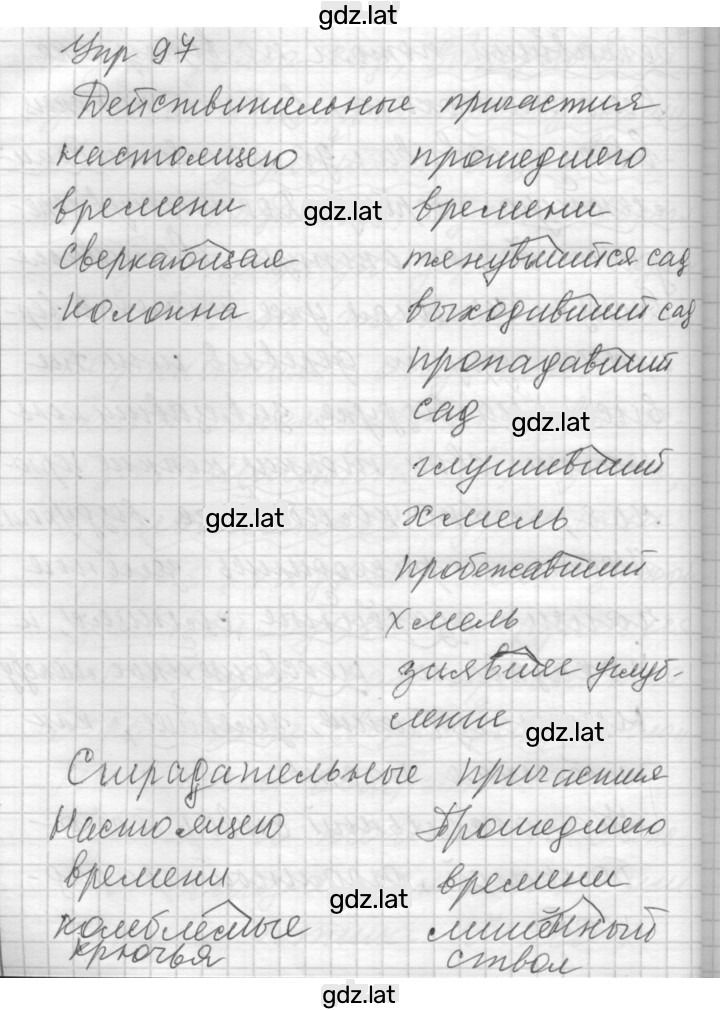 gdz.lat
Упр 97
Действительные причастия
настоящего прошедшего
времени gdz.lat времени
сверкающая тянувшийся сад
колонна выходивший сад
пропадавший
сад gdz.lat
глушивший
gdz.lat хмель
пробежавший
хмель
зиявшее углуб-
ление gdz.lat
Страдательные причастия
Настоящего Прошедшего
времени gdz.lat времени
колеблемые лишённый
крючья ствол
gdz.lat